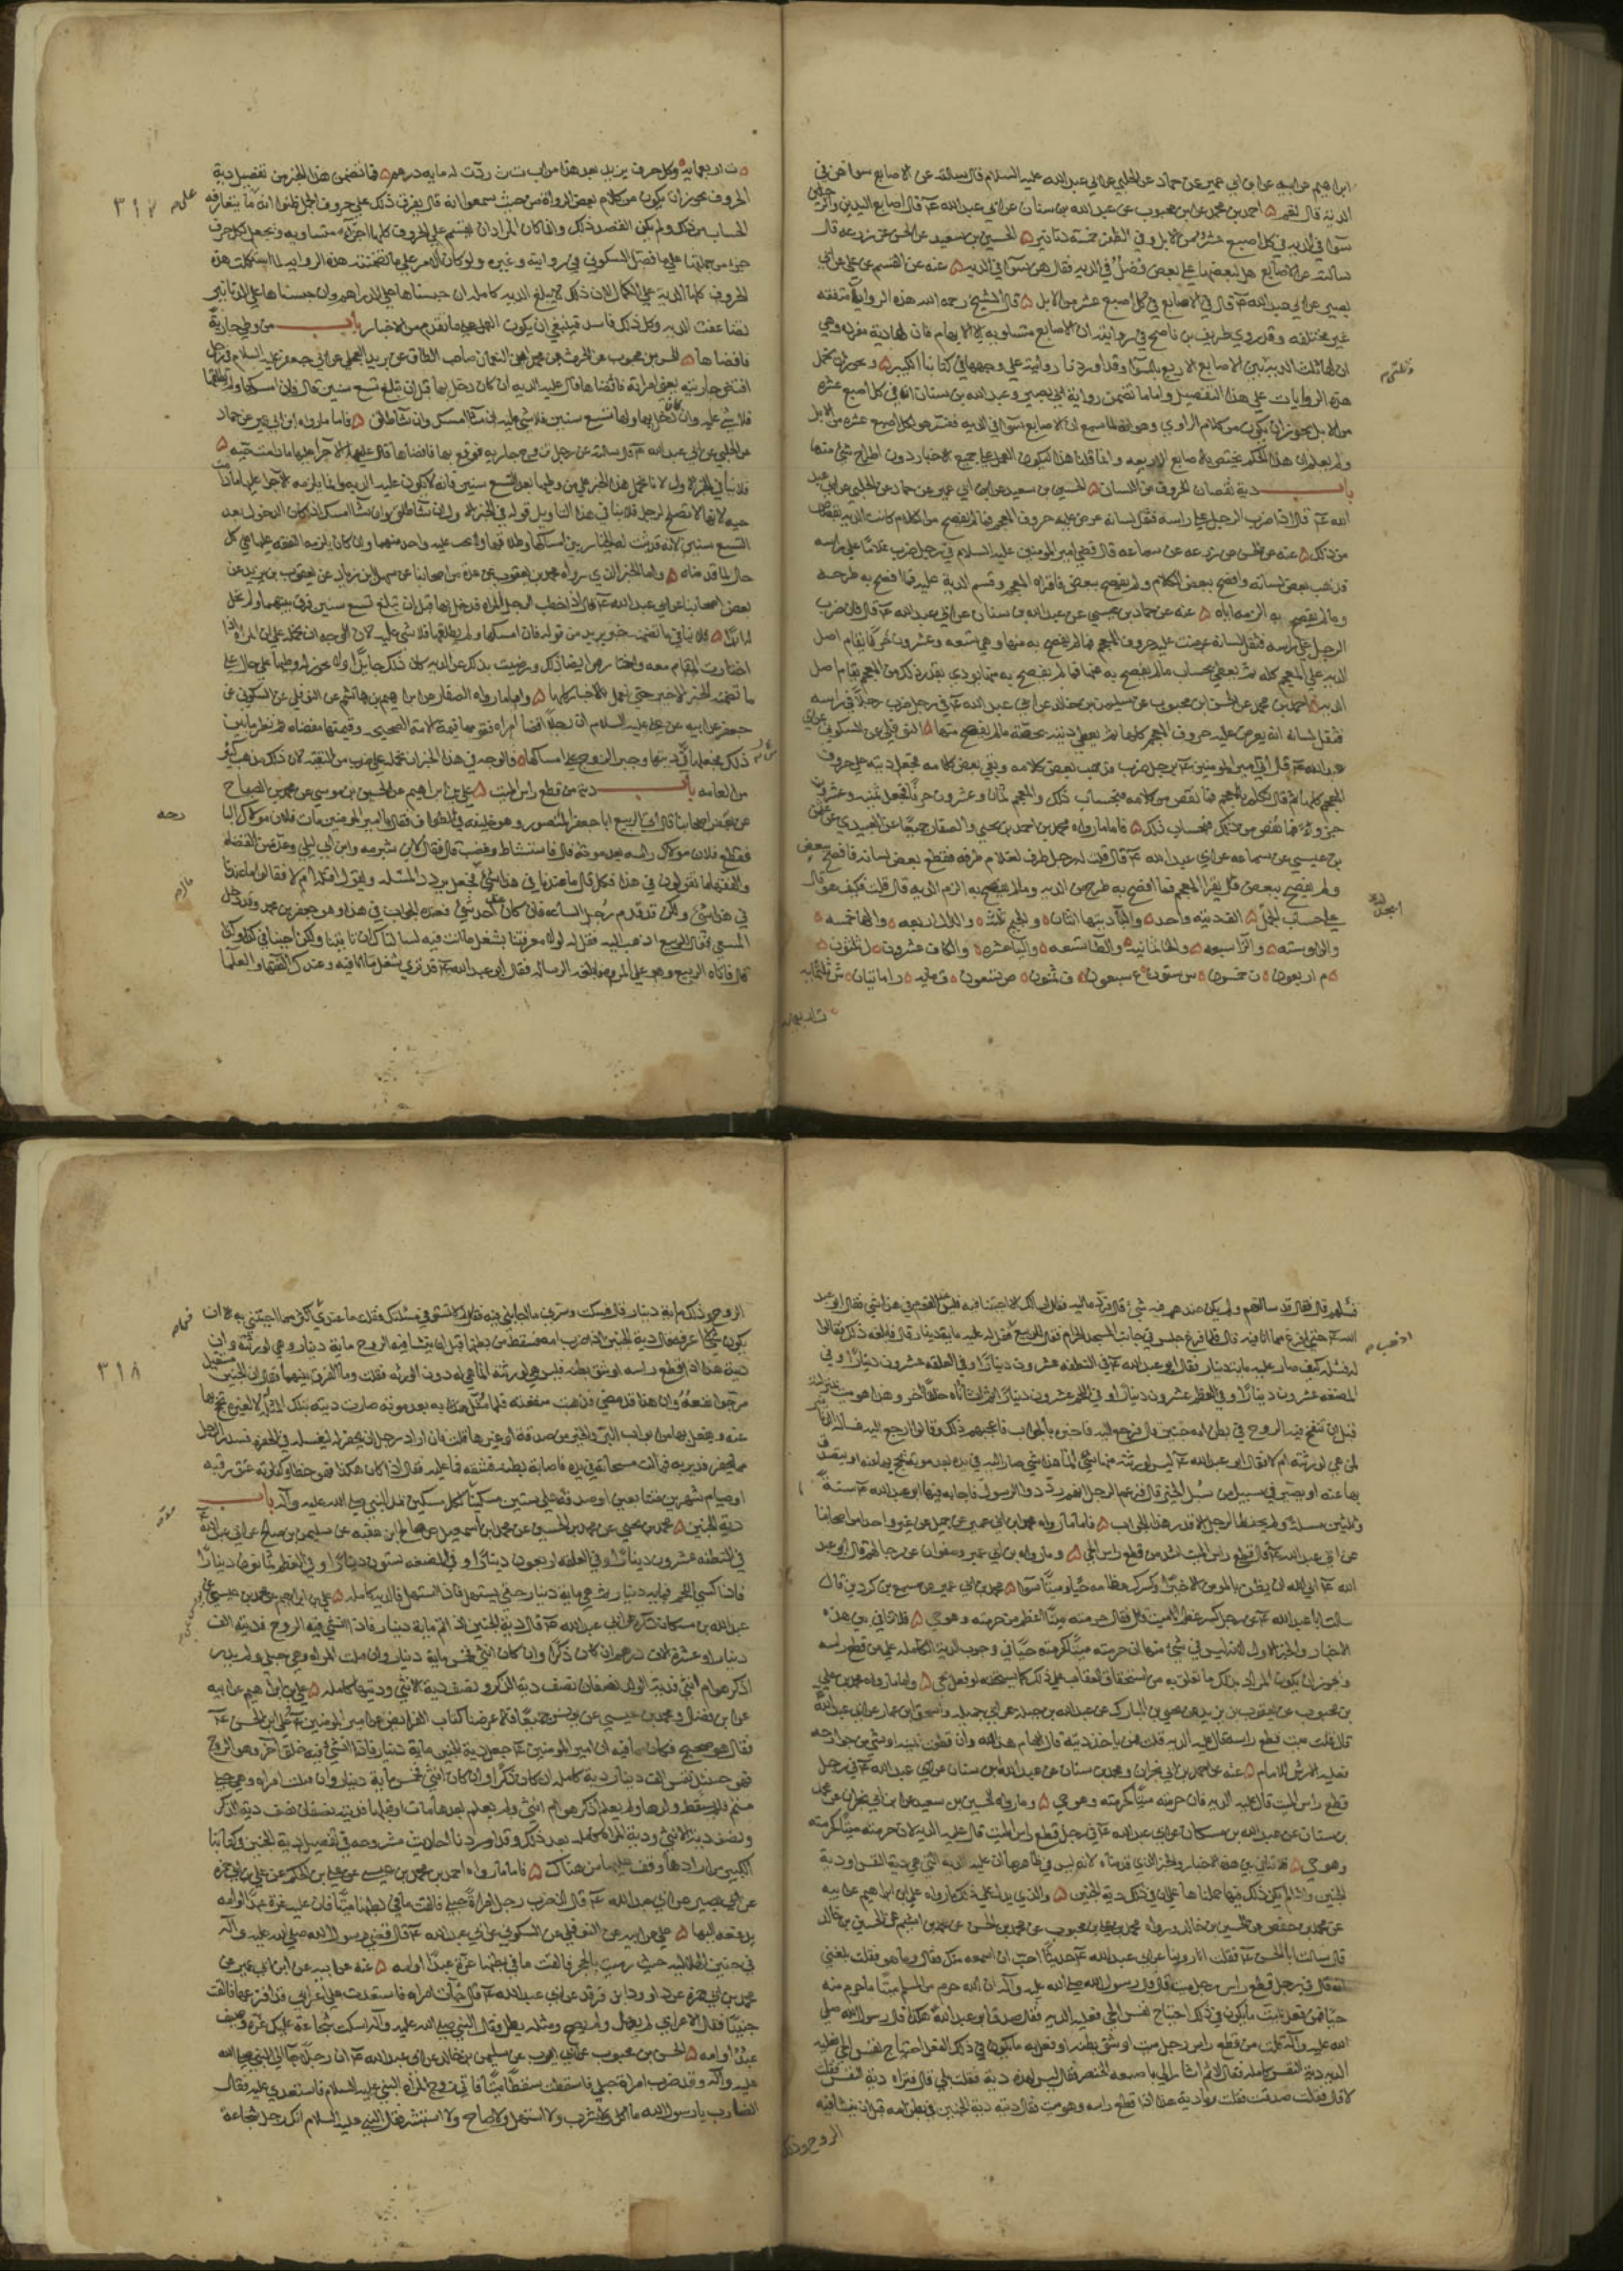 ابراهيم عن ابيه عن ابن ابي عمير عن حماد عن الحلبي عن ابي عبد الله عليه السلام قال سالته عن الاصابع سواهن في
الدية قال نعم احمد بن محمد عن ابن محبوب عن عبد الله بن سنان عن ابي عبد الله ع قال اصابع اليدين والرجلين
سوآ في الديه في كل اصبع عشر من الابل وفي الظفر خمسة دنانير الحسين بن سعيد عن الحسن عن زرعه قال
سالته عن الاصابع هل لبعضها على بعض فضل في الديه فقال هن سوآ في الديه عنه عن القسم عن علي عن ابي
بصير عن ابي عبد الله ع قال في الاصابع في كل اصبع عشر من الابل قال الشيخ رحمه الله هذه الروايات متفقه
غير مختلفه وقد روي ظريف بن ناصح في روايته ان الاصابع متساويه الا الابهام فان لها دية مفرده وهي
ان لها ثلث الدية بين الاصابع الاربع بالسوآ وقد اوردنا روايته علي وجهها في كتابنا الكبير ويجوز ان نحمل
هذه الروايات علي هذا التفصيل واما ما تضمن رواية ابي بصير وعبد الله بن سنان انه في كل اصبع عشره
من الابل يجوز ان يكون من كلام الراوي وهو انه لما سمع ان الاصابع سوآ في الديه فسر هو لكل اصبع عشره من الابل
ولم يعلم ان هذا الحكم يختص بالاصابع الاربعه وانما قلنا هذا ليكون العمل على جميع الاخبار دون اطراح شئ منها
باب دية نقصان الحروف من اللسان الحسين بن سعيد عن ابن ابي عمير عن حماد عن الحلبي عن ابي عبد
الله ع قال اذا ضرب الرجل علي راسه فثقل لسانه عرض عليه حروف المعجم فما لم يفصح من الكلام كانت الديه بقصاص
من ذلك عنه عن الحسن عن زرعه عن سماعه قال قضي امير المومنين عليه السلام في رجل ضرب غلاما علي راسه
فذهب بعض لسانه وافصح ببعض الكلام ولم يفصح ببعض فاقراه المعجم وقسم الدية عليه فما افصح به طرحه
وما لم يفصح به الزمه اياه عنه عن حماد بن عيسي عن عبد الله بن سنان عن ابي عبد الله ع قال فان ضرب
الرجل علي راسه فثقل لسانه عرضت عليه حروف المعجم فما لم يفصح به منها وهي تسعه وعشرون حرفا يقام اصل
الديه علي المعجم كله ثم يعطي بحساب ما لم يفصح به منها فما لم يفصح به منها يودي بقدر ذلك من المعجم يقام اصل
الديه احمد بن محمد عن الحسن ابن محبوب عن سليمن بن خالد عن ابي عبد الله ع في رجل ضرب رجلا في راسه
فثقل لسانه انه يعرض عليه حروف المعجم كلها ثم يعطي ديته بحصة ما لم يفصح منها النوفلي عن السكوني عن ابي
عبد الله ع قال اتي امير المومنين ع برجل ضرب فذهب بعض كلامه وبقي بعض كلامه فجعل ديته علي حروف
المعجم كلها ثم قال تكلم بالمعجم فما نقص من كلامه فبحساب ذلك والمعجم ثمان وعشرون حرفا فجعل ثمنيه وعشرون
جزوا فما نقص من ذلك فبحساب ذلك فاما ما رواه محمد بن احمد بن يحيي والصفار جميعا عن العبيدي عن عثمن
بن عيسي عن سماعه عن ابي عبد الله ع قال قلت له رجل طرف لغلام طرفه فقطع بعض لسانه فافصح ببعض
ولم يفصح ببعض قال يقرا المعجم فما افصح به طرح من الديه وما لا يفصح به الزم الديه قال قلت فكيف هو قال
علي حساب الجمل الف ديته واحده والبآ ديتها اثنان والجيم ثلثه والدال اربعه والها خمسه
والواو سته والزآ سبعه والحا ثمانيه والطآ تسعه واليا عشره والكاف عشرون ل ثلثون
م اربعون ن خمسون س ستون ع سبعون ف ثمنون ص تسعون ق مايه ر امايتان ش ثلثمايه
ت اربعمايه
ت اربعمايه وكل حرف يزيد بعد هذا من اب ت ث زدت له مايه درهم فما تضمن هذا الخبر من تفصيل دية
الحروف يجوز ان يكون من كلام بعض الرواة من حيث سمعوا انه قال يفرق ذلك علي حروف الجمل ظنوا انه ما يتعارفه
الحساب من ذلك ولم يكن القصد ذلك وانما كان المراد ان يقسم علي الحروف كلها اجزاء متساويه ويجعل لكل حرف
جزء من جملتها علي ما فصل السكوني في روايته وغيره ولو كان الامر علي ما تضمنته هذه الروايه لما استكملت هذه
الحروف كلها الدية علي الكمال لان ذلك لا يبلغ الديه كامله ان حسبناها علي الدراهم وان حسبناها علي الدنانير
تضاعفت الديه وكل ذلك فاسد فينبغي ان يكون العمل علي ما تقدم من الاخبار باب من وطي جارية
فافضاها الحسن بن محبوب عن الحرث بن محمد بن النعمان صاحب الطاق عن بريد العجلي عن ابي جعفر عليه السلام في رجل
افتض جاريته يعني امراته فافضاها قال عليه الديه ان كان دخل بها قبل ان تبلغ تسع سنين قال فان امسكها ولم يطلقها
فلا شئ عليه وان كان دخل بها ولها تسع سنين فلا شئ عليه ان شآ امسك وان شآ طلق فاما ما رواه ابن ابي عمير عن حماد
عن الحلبي عن ابي عبد الله ع قال سالته عن رجل تزوج جاريه فوقع بها فافضاها قال عليه الاجرآ عليها ما دامت حيه
فلا ينافي الخبر الاول لانا نحمل هذا الخبر علي من وطيها بعد التسع سنين فانه لا يكون عليه الديه وانما يلزمه الاجرآ عليها ما دامت
حيه لانها لا تصلح لرجل فلا ينافي هذا التاويل قوله في الخبر الاول ان شآ طلق وان شآ امسك اذا كان الدخول بعد
التسع سنين لانه قد ثبت له الخيار بين امساكها وطلاقها ولا يجب عليه واحد منهما وان كان يلزمه النفقه عليها علي كل
حال لما قدمناه واما الخبر الذي رواه محمد بن يعقوب عن عدة من اصحابنا عن سهل ابن زياد عن يعقوب بن يزيد عن
بعض اصحابنا عن ابي عبد الله ع قال اذا خطب الرجل المراه فدخل بها قبل ان تبلغ تسع سنين فرق بينهما ولم تحل
له ابدا فلا ينافي ما تضمنه خبر بريد من قوله فان امسكها ولم يطلقها فلا شئ عليه لان الوجه ان نحمله علي ان المراه اذا
اختارت المقام معه واختار هو ايضا ذلك ورضيت بذلك عن الديه كان ذلك جايزا ولا يجوز له وطيها علي حال علي
ما تضمنه الخبر الاخير حتي نعمل بالاخبار كلها واما ما رواه الصفار عن ابراهيم بن هاشم عن النوفلي عن السكوني عن
جعفر عن ابيه عن علي عليه السلام ان رجلا افضا امراه فقومها قيمة الامة الصحيحه وقيمتها مفضاه ثم نظر ما بين
ذلك فجعله من ديتها وجبر الزوج علي امساكها فالوجه في هذا الخبر ان نحمله علي ضرب من التقيه لان ذلك مذهب كثير
من العامه باب دية من قطع راس الميت علي بن ابراهيم عن الحسين بن موسي عن محمد بن الصباح
عن بعض اصحابنا قال اتي الربيع ابا جعفر المنصور وهو خليفه في الطواف فقال يا امير المومنين مات فلان مولاك البارحه
فقطع فلان مولاك راسه بعد موته قال فاستشاط وغضب قال فقال لابن شبرمه وابن ابي ليلي وعدة من القضاه
والفقها ما تقولون في هذا فكل قال ما عندنا في هذا شئ فجعل يردد المسئله ويقول اقتله ام لا فقالوا ما عندنا
في هذا شئ ولكن قد قدم رجل الساعه فان كان عند احد شئ فعنده الجواب في هذا وهو جعفر بن محمد وقد دخل
المسعي فقال للربيع اذهب اليه فقل له لولا معرفتنا بشغل ما انت فيه لسالناك ان تاتينا ولكن اجبنا في كذا وكذا
قال فاتاه الربيع وهو علي المروه فابلغه الرساله فقال ابو عبد الله ع قد تري شغل ما انا فيه وعندك الفقها والعلمآ
٣١٧
فسلهم قال فقال قد سالتهم ولم يكن عندهم فيه شئ قال فرده اليه فقال اسالك الا اجبتنا فيه فليس عند القوم في هذا شئ فقال ابو عبد
الله ع حتي افرغ مما انا فيه قال فلما فرغ جلس في جانب المسجد الحرام فقال للربيع اذهب فقل له عليه ماية دينار قال فابلغه ذلك فقالوا
له فسله كيف صار عليه ماية دينار فقال ابو عبد الله ع في النطفه عشرون دينارا وفي العلقه عشرون دينارا وفي
المضغه عشرون دينارا وفي العظم عشرون دينارا وفي اللحم عشرون دينارا ثم انشاناه خلقا اخر وهذا هو ميت بمنزلته
قبل ان تنفخ فيه الروح في بطن امه جنين قال فرجع اليه فاخبره بالجواب فاعجبهم ذلك وقالوا ارجع اليه فسله الدنانير
لمن هي لورثته ام لا فقال ابو عبد الله ع ليس لورثته فيها شئ انما هذا شئ صار اليه في بدنه بعد موته يحج بها عنه او يتصدق
بها عنه او يصير في سبيل من سبل الخير قال فزعم الرجل انهم ردوا الرسول فاجابه فيها ابو عبد الله ع ستة
وثلثين مسئلة ولم يحفظ الرجل الا قدر هذا الجواب فاما ما رواه محمد بن ابي عمير عن جميل عن غير واحد من اصحابنا
عن ابي عبد الله ع قال قطع راس الميت اشد من قطع راس الحي وما رواه ابن ابي عمير وصفوان عن رجالهم قال ابو عبد
الله ع ابي الله ان يظن بالمومن الا خيرا وكسرك عظامه حيا وميتا سوآ محمد بن ابي عمير عن مسمع بن كردين قال
سالت ابا عبد الله ع عن رجل كسر عظم ميت قال فقال حرمته ميتا اعظم من حرمته وهو حي فلا تنافي بين هذه
الاخبار والخبر الاول لانه ليس في شئ منها ان حرمته ميتا كحرمته حيا في وجوب الدية الكامله علي من قطع راسه
ويجوز ان يكون المراد بذلك ما تعلق به من استحقاق العقاب علي ذلك كما يستحق لو فعل بحي واما ما رواه محمد بن علي
بن محبوب عن يعقوب بن يزيد عن يحيي بن المبارك عن عبد الله بن جبله عن ابي جميله واسحق ابن عمار عن ابي عبد الله ع
قال قلت ميت قطع راسه قال عليه الديه قلت فمن ياخذ ديته قال الامام هذا لله وان قطعت يمينه او شئ من جوارحه
فعليه الارش للامام عنه عن احمد بن ابي نجران ومحمد بن سنان عن عبد الله بن سنان عن ابي عبد الله ع في رجل
قطع راس الميت قال عليه الديه فان حرمته ميتا كحرمته وهو حي وما رواه الحسين بن سعيد عن ابن ابي نجران عن محمد
بن سنان عن عبد الله بن مسكان عن ابي عبد الله ع في رجل قطع راس الميت قال عليه الديه لان حرمته ميتا كحرمته
وهو حي فلا تنافي بين هذه الاخبار والخبر الذي قدمناه لانه ليس في ظاهرها ان عليه الدية التي هي دية النفس او دية
الجنين واذا لم يكن ذلك فيها حملناها علي ان في ذلك دية الجنين والذي يدل علي ذلك ما رواه علي بن ابراهيم عن ابيه
عن محمد بن حفص عن الحسين بن خالد ورواه محمد بن علي بن محبوب عن محمد بن الحسن عن محمد بن اشيم عن الحسين بن خالد
قال سالت ابا الحسن ع فقلت انا روينا عن ابي عبد الله ع حديثا احب ان اسمعه منك فقال وما هو فقلت بلغني
انه قال في رجل قطع راس رجل ميت قال قال رسول الله صلي الله عليه وآله ان الله حرم من المسلم ميتا ما حرم منه
حيا فمن فعل بميت ما يكون في ذلك اجتياح نفس الحي فعليه الديه فقال صدق ابو عبد الله ع هكذا قال رسول الله صلي
الله عليه وآله قلت من قطع راس رجل ميت او شق بطنه او فعل به ما يكون في ذلك الفعل اجتياح نفس الحي فعليه
الديه دية النفس كامله فقال لا ثم اشار الي باصبعه الخنصر فقال اليس لهذه دية فقلت بلي قال فتراه دية النفس فقلت
لا قال فقلت صدقت فقلت وما دية هذا اذا قطع راسه وهو ميت فقال ديته دية الجنين في بطن امه قبل ان ينشا فيه
الروح وذلك
الروح وذلك ماية دينار قال فسكت وسرني ما اجابني فيه فقال لم لا تستوفي مسئلتك فقلت ما عندي اكثر مما اجبتني به الا ان
يكون شئ لا اعرفه فقال دية الجنين اذا ضربت امه فسقط من بطنها قبل ان ينشا فيه الروح ماية دينار وهي لورثته وان
دية هذا اذا قطع راسه او شق بطنه فليس هي لورثته انما هي له دون الورثه فقلت وما الفرق بينهما فقال ان الجنين مستقبل
مرجو نفعه وان هذا قد مضي فذهبت منفعته فلما مثل به بعد موته صارت ديته بتلك المثله له لا لغيره يحج بها
عنه ويفعل بها من ابواب البر والخير من صدقه او غيرها قلت فان اراد رجل ان يحفر له ليغسله في الحفرة فسدر الرجل
مما يحفر فدير به فمالت مسحاته في يده فاصابة بطنه فشقه فما عليه فقال اذا كان هكذا فهو خطا وكفارته عتق رقبه
او صيام شهرين متتابعين او صدقه علي ستين مسكينا لكل مسكين مد بمد النبي صلي الله عليه وآله باب
دية الجنين محمد بن يحيي عن محمد بن الحسين عن محمد بن اسمعيل عن صالح ابن عقبه عن سليمن بن صالح عن ابي عبد الله ع
في النطفه عشرون دينارا وفي العلقه اربعون دينارا وفي المضغه ستون دينارا وفي العظم ثمانون دينارا
فاذا كسي اللحم فمايه دينار ثم هي مايه دينار حتي يستهل فاذا استهل فالديه كامله علي بن ابراهيم عن محمد بن عيسي عن
عبد الله بن مسكان عن ابي عبد الله ع قال دية الجنين اذا تم ماية دينار فاذا انشئ فيه الروح فديته الف
دينار او عشرة الاف درهم ان كان ذكرا وان كان انثي فخمس ماية دينار وان قتلت المراه وهي حبلي ولم يدر
اذكر هو ام انثي فدية الولد نصفان نصف دية الذكر ونصف دية الانثي وديتها كامله علي بن ابراهيم عن ابيه
عن ابن فضال ومحمد بن عيسي عن يونس جميعا قالا عرضنا كتاب الفرايض عن امير المومنين ع علي ابي الحسن ع
فقال هو صحيح فكان مما فيه ان امير المومنين ع جعل دية الجنين ماية دينار فاذا انشئ فيه خلق اخر وهو الروح
فهو حينئذ نفس الف دينار دية كامله ان كان ذكرا وان كان انثي فخمس ماية دينار وان قتلت امراه وهي حبلي
متم فلم يسقط ولدها ولم يعلم اذكر هو ام انثي ولم يعلم بعدها مات او قبلها فديته نصفان نصف دية الذكر
ونصف دية الانثي ودية المراة كامله بعد ذلك وقد اوردنا احاديث مشروحه في تفصيل دية الجنين في كتابنا
الكبير من ارادها وقف عليها من هناك فاما ما رواه احمد بن محمد بن عيسي عن علي بن الحكم عن علي بن ابي حمزه
عن ابي بصير عن ابي عبد الله ع قال ان ضرب رجل امراة حبلي فالقت ما في بطنها ميتا فان عليه غرة عبدا او امه
يدفعه اليها علي عن ابيه عن النوفلي عن السكوني عن ابي عبد الله ع قال قضي رسول الله صلي الله عليه وآله
في جنين الهلاليه حيث رميت بالحجر فالقت ما في بطنها غرة عبدا او امه عنه عن ابيه عن ابن ابي عمير عن
محمد بن ابي حمزه عن داود ابن فرقد عن ابي عبد الله ع قال جآت امراه فاستعدت علي اعرابي قد افزعها فالقت
جنينا فقال الاعرابي لم يهل ولم يصح ومثله يطل فقال النبي صلي الله عليه وآله اسكت سجاعة عليك غرة وصيف
عبد او امه الحسن بن محبوب عن ابي ايوب عن سليمن بن خالد عن ابي عبد الله ع ان رجلا جآ الي النبي صلي الله
عليه وآله وقد ضرب امراة حبلي فاسقطت سقطا ميتا فاتي زوج المراه النبي عليه السلام فاستعدي عليه فقال
الضارب يا رسول الله ما اكل ولا شرب ولا استهل ولا صاح ولا استبشر فقال النبي عليه السلام انك رجل سجاعة
٣١٨